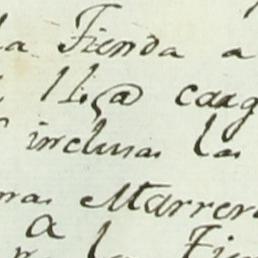 la Tienda a
11. @ carg
inclusa. la
mas Marrer
a
la Tien